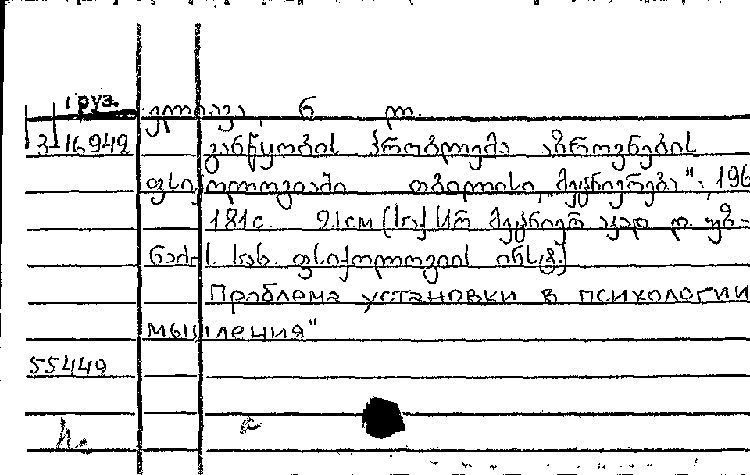 груз.
ელიავა, ნ ლ.
3-16949 განწყობის პრობლემა აზროვნების
ფსიქოლოგიაში თბილისი, „მეცნიერება", 196
181с. 21см (საქ სსრ მეცნიერ აკად დ. უზ-
ნაძ. სახ. ფსიქოლოგიის ინსტ.)
Проблема установки в психологии
мышления"
55449